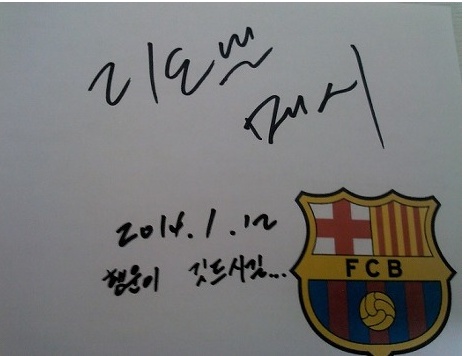 리오넬
메시
2014.1.12
행운이 깃드시길...
FCB